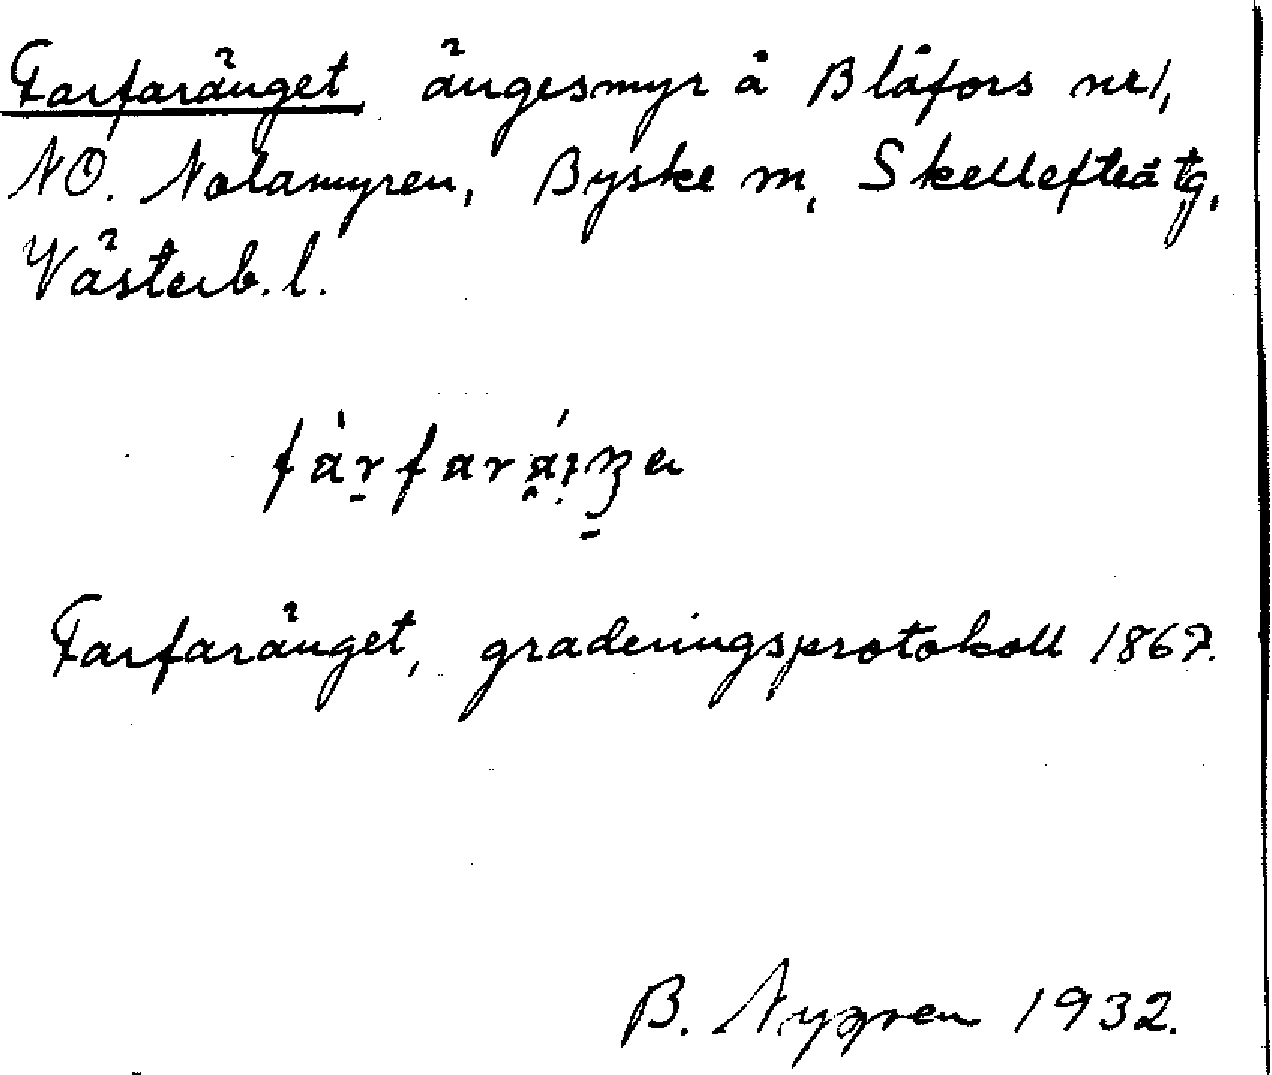 Farfaränget, ängesmyr å Blåfors nel,
NO. Nolamyren, Byske sn, Skellefteå tg,
Västerb. l.
Farfaränget, graderingsprotokoll 1867.
B. Nygren 1932.